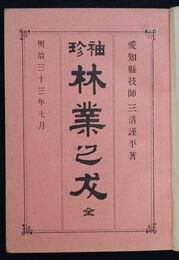 愛知縣技師 三溝謹平著
袖珍
林業必攜
全
明治三十三年七月